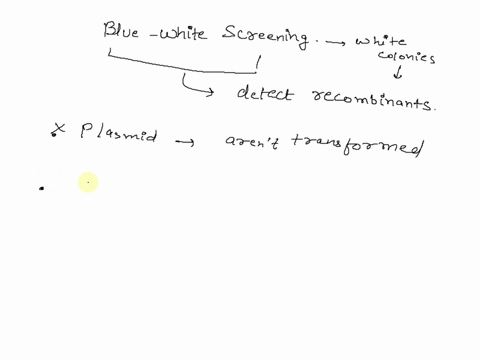 Blue-White Screening. → white
colonies
↓
detect recombinants.
x Plasmid → aren't transformed